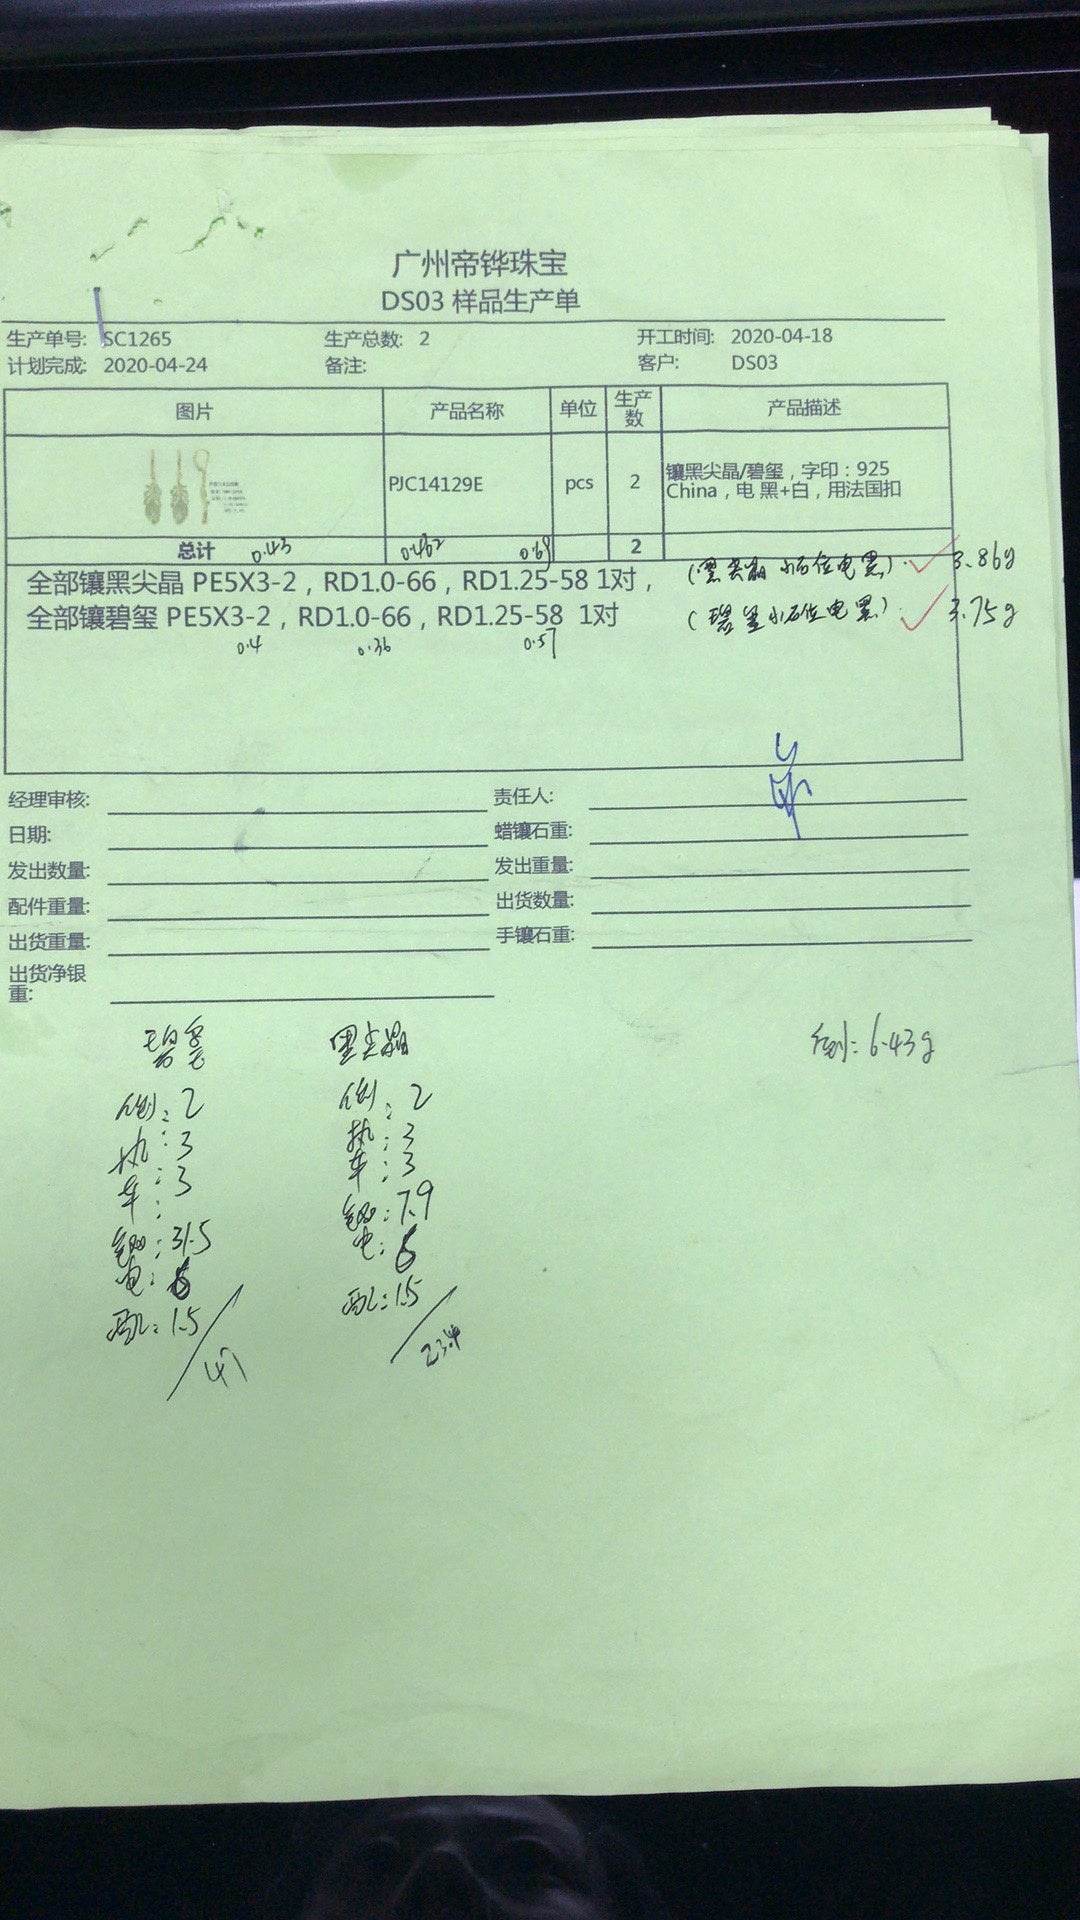 广州帝铧珠宝
DS03 样品生产单
生产单号: SC1265 生产总数: 2 开工时间: 2020-04-18
计划完成: 2020-04-24 备注: 客户: DS03
图片 产品名称 单位 生产数 产品描述
PJC14129E pcs 2 镶黑尖晶/碧玺，字印：925
China，电 黑+白，用法国扣
总计 2
0.43 0.462 0.69
全部镶黑尖晶 PE5X3-2，RD1.0-66，RD1.25-58 1对， (黑尖晶 小石位电黑) ✓ 3.86g
全部镶碧玺 PE5X3-2，RD1.0-66，RD1.25-58 1对 (碧玺小石位电黑) ✓ 3.75g
0.4 0.36 0.57
经理审核: 责任人:
日期: 蜡镶石重:
发出数量: 发出重量:
配件重量: 出货数量:
出货重量: 手镶石重:
出货净银
重:
碧玺 黑尖晶 倒: 6.43g
倒: 2 倒: 2
执: 3 执: 3
车: 3 车: 3
镶: 31.5 镶: 7.9
电: 6 电: 6
配: 1.5 配: 1.5
47 23.4